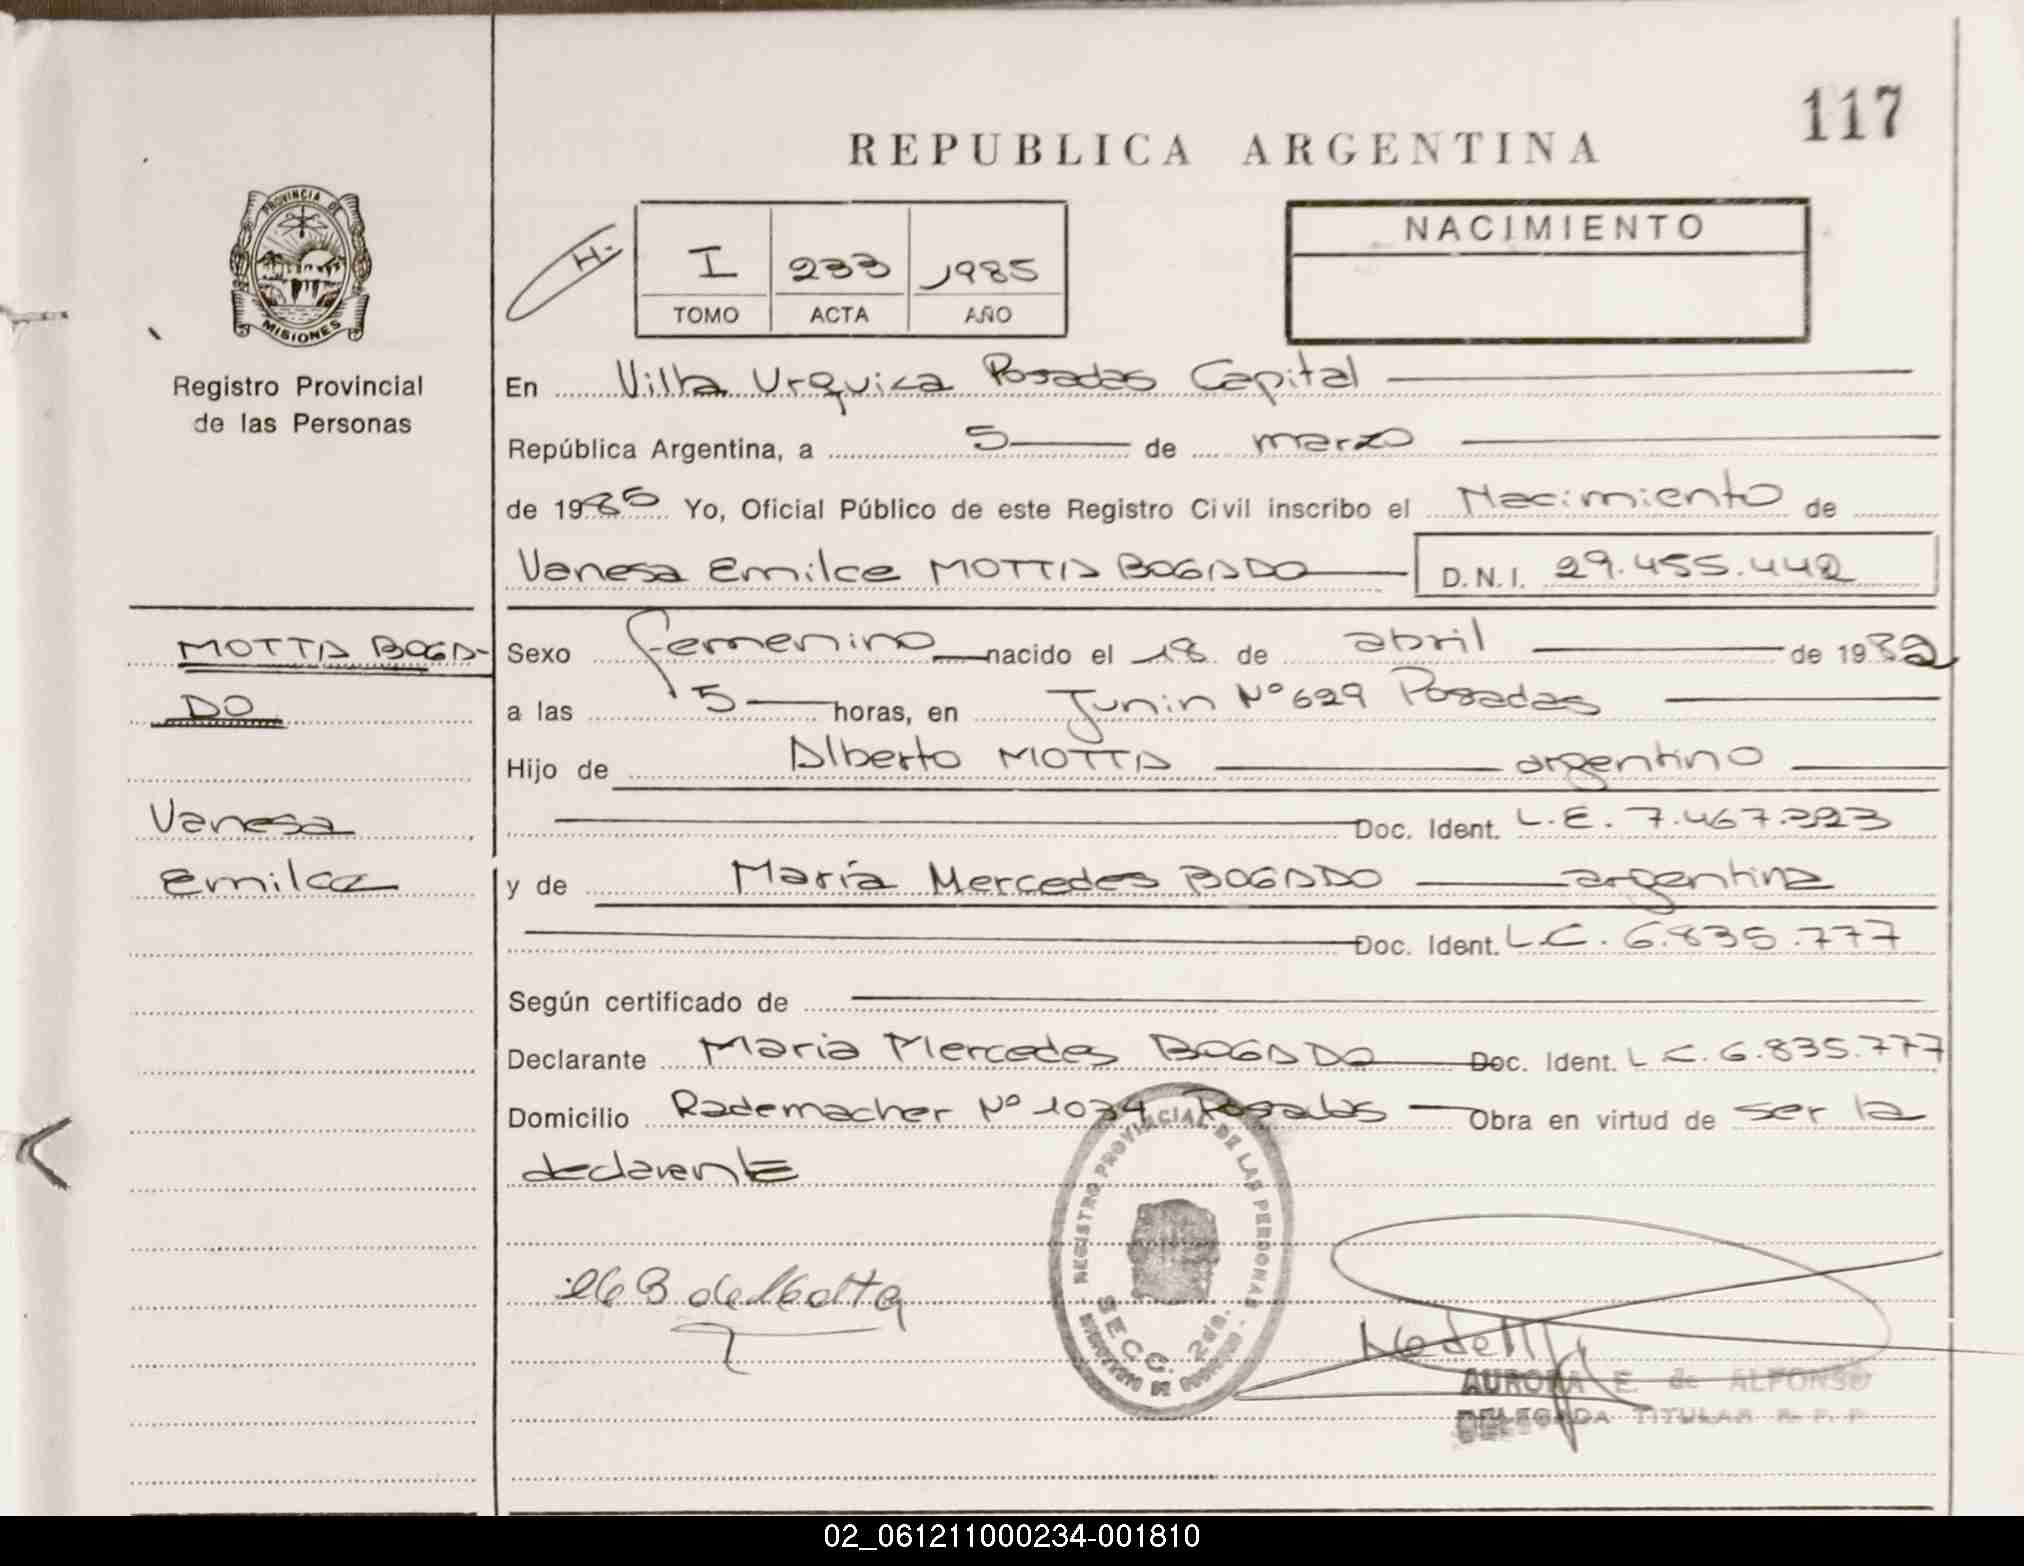 117
REPUBLICA ARGENTINA
PROVINCIA DE
MISIONES
H.
I 233 1985
TOMO ACTA AÑO
NACIMIENTO
Registro Provincial
de las Personas
En Villa Urquiza Posadas Capital
República Argentina, a 5 de marzo
de 1985 Yo, Oficial Público de este Registro Civil inscribo el Nacimiento de
Vanesa Emilce MOTTA BOGADO D.N.I. 29.455.442
MOTTA BOGA-
DO
Vanesa
Emilce
Sexo femenino nacido el 18 de abril de 1982
a las 5 horas, en Junin Nº 629 Posadas
Hijo de Alberto MOTTA argentino
Doc. Ident. L.E. 7.467.223
y de María Mercedes BOGADO argentina
Doc. Ident. L.C. 6.835.777
Según certificado de
Declarante Maria Mercedes BOGADO Doc. Ident. L.C. 6.835.777
Domicilio Rademacher Nº 1034 Posadas Obra en virtud de ser la
declarante
REGISTRO PROVINCIAL DE LAS PERSONAS
SECC. 2da.
B de Motta
AURORA E. de ALFONSO
DELEGADA TITULAR R. P. P.
02_061211000234-001810